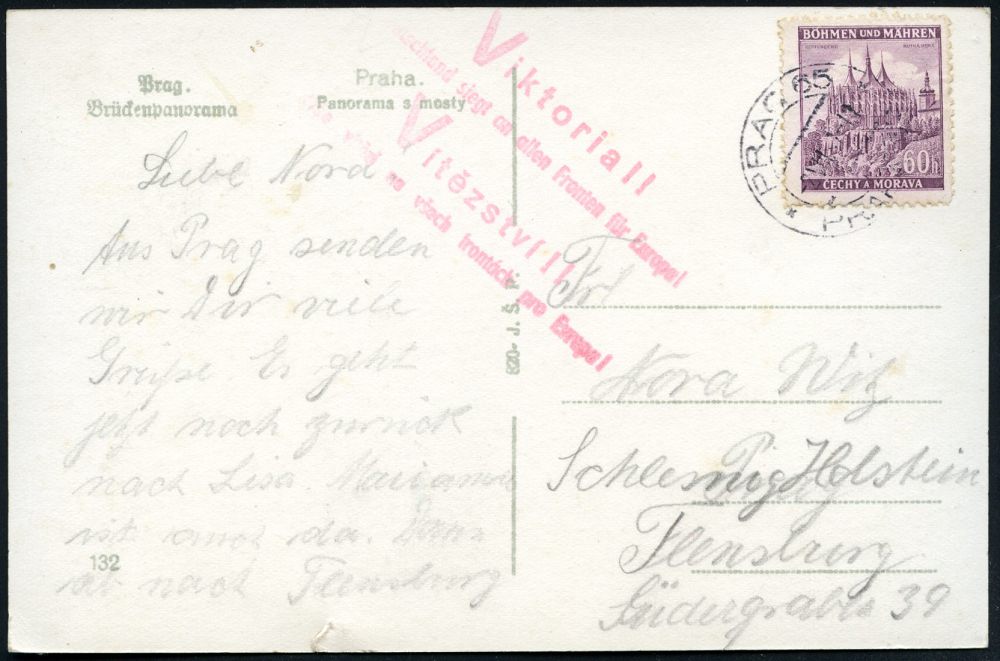 Prag.
Brückenpanorama
Praha.
Panorama s mosty
Viktoria!!
schland siegt an allen Fronten für Europa!
Vítězství!!
na všech frontách pro Evropu!
BÖHMEN UND MÄHREN
KUTNÁ HORA
60h
ČECHY A MORAVA
PRAG 65
Liebe Nora
Aus Prag senden
wir Dir viele
Grüße. Es geht
jetzt noch zurück
nach Lisa. Marianne
ist auch da. Dann
ab nach Flensburg
132
J. Š. P.
Frl
Nora Witz
Schleswig Holstein
Flensburg
Südergraben 39